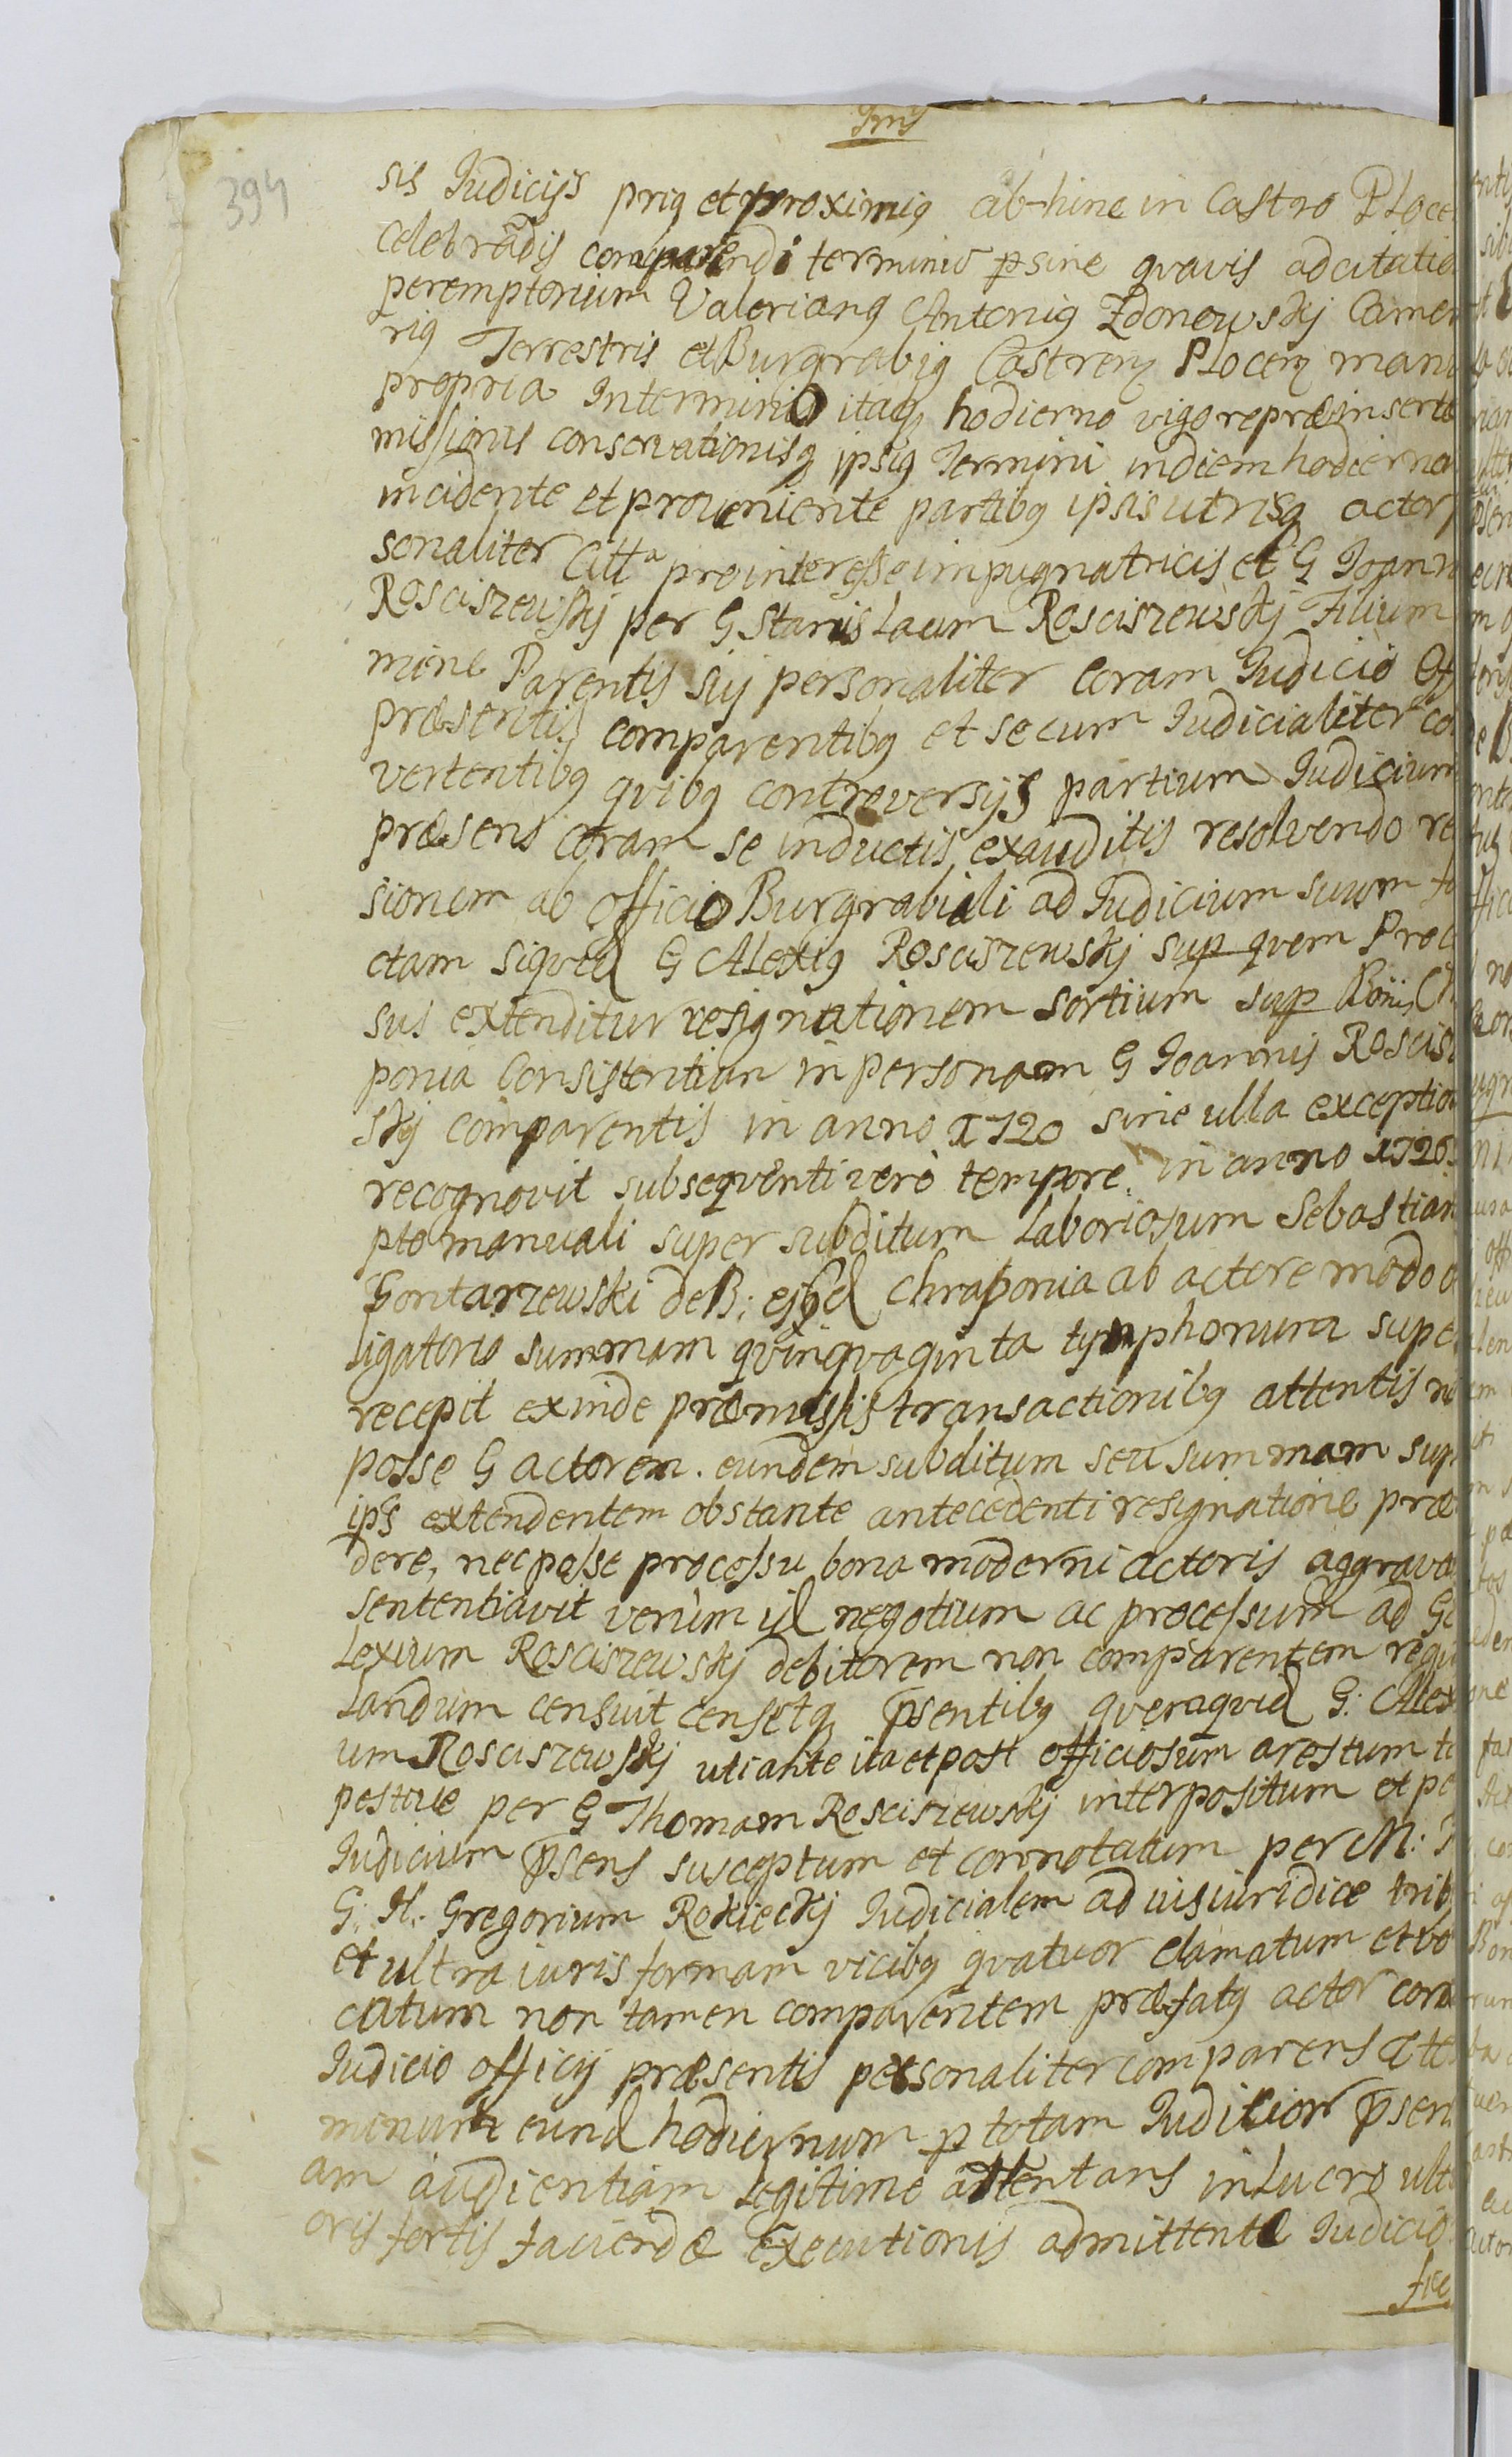 394
sis Judicijs priq et proximiq ab-hinc in Castro Ploce
celebrādis comparendi terminū p̄sine qvavis adcitatio
peremptorium Valerianq Antoniq Zdonowskij Camer
riq Terrestris et Burgrabiq Castrenz Plocenz manu
propria Intermino itaq hodierno vigore præinserte
missionis conservationisq ipsiq Termini in diem hodierna
incidente et proveniente partibq ipsis utrisq actor
sonaliter Citta pro interesse impugnatricis et G Joann
Rosciszewskij per G Stanislaum Rosciszewskij Filium
mine Parentis sui personaliter coram Judicio Off
præsentis comparentibq et secum Judicialiter co
vertentibq qvibq controversijs partium Judicium
præsens coram se inductis, exauditis resolvendo re
sionem ab officio Burgrabiali ad Judicium suum fa
ctam siqvid G Alexiq Rosciszewskij sup qvem Proc
sus extenditur resignationem sortium sup Boñis Ch
ponia Consistentium in personam G Joannis Roscis
skij comparentis in anno 1720 sine ulla exceptio
recognovit subseqventi verò tempore in anno 1726
pto manuali super subditum Laboriosum Sebastian
Gontarzewski de B: ejsd Chraponia ab actore modo o
ligatorio summam qvinqvaginta tymphonum supe
recepit exinde præmissis transactionibq attentis n
posse G actorem eundem subditum seu summam sup
ips extendentem obstante antecedenti resignatione præ
dere, nec posse processu bona moderni actoris aggrava
sententiavit verùm id negotium ac processum ad G
Lexium Rosciszewskij debitorem non comparentem regu
Landum censuit censetq p̄sentibq qveraqvid G: Alex
um Rosciszewskij uti ante ita et post officiosum arestum te
pestive per G Thomam Rosciszewskij interpositum et pe
Judicium p̄sens susceptum et connotatum per M:
G: H: Gregorium Rokieckij Judicialem ad vis iuridice trib
et ultra iuris formam vicibq qvatuor clamatum et vo
catum non tamen comparentem præfatq actor cora
Judicio officij præsentis personaliter comparens te
minum eund hodiernum p totam Judicior p̄sen
am audientiam Legitime attentans in Lucro ult
oris fortis faciendæ Executionis admittente Judicio